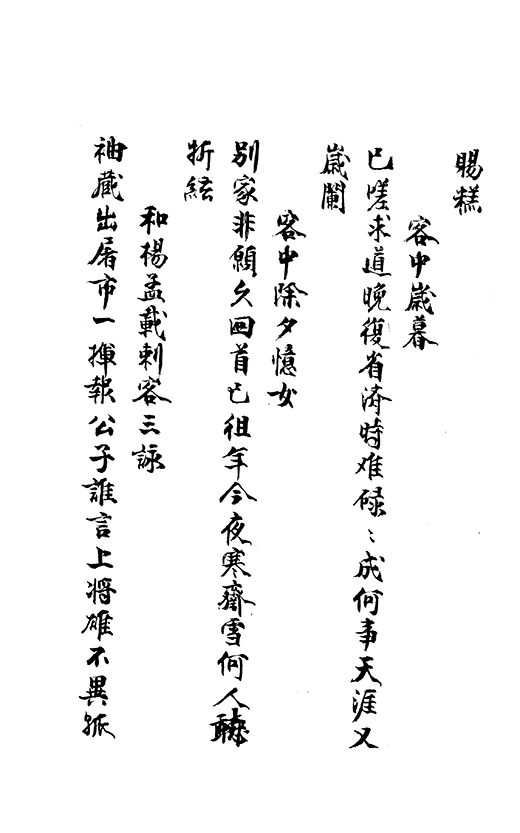 賜糕
客中歲暮
已嗟求道晚復省済時难碌〻成何事天涯又
歲闌
客中除夕憶女
別家非願久回首已徂年今夜寒齋雪何人聽
折絃
和楊孟載刺客三詠
袖藏出屠市一揮報公子誰言上將雄不異孤